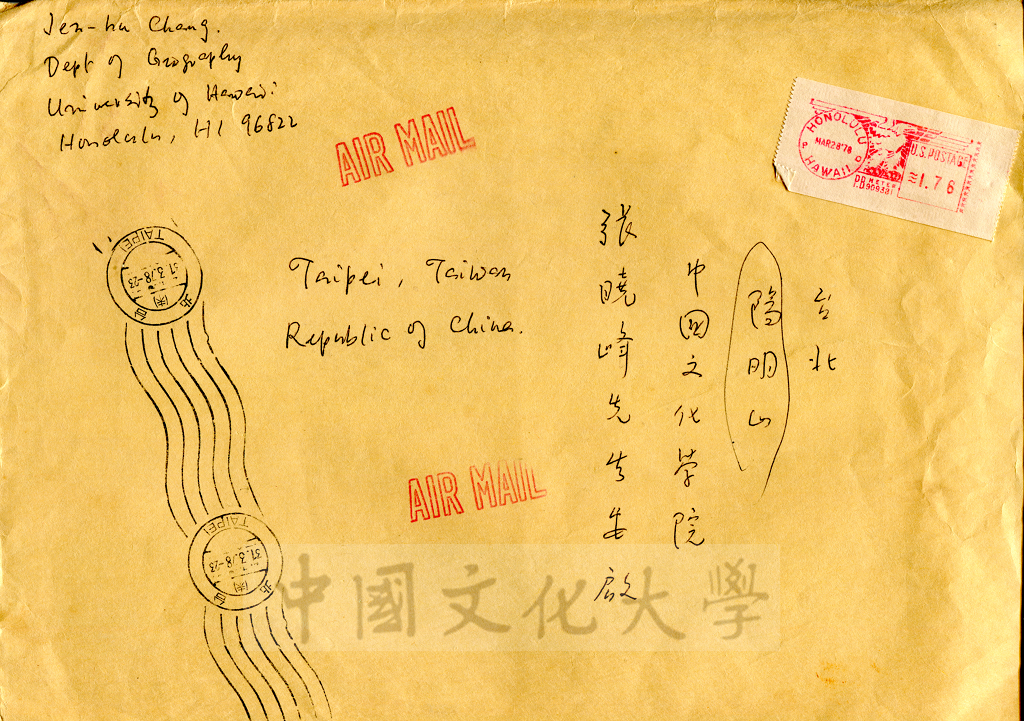 Jen-hu Chang.
Dept of Geography
University of Hawaii
Honolulu, HI 96822
AIR MAIL
HONOLULU
HAWAII
MAR28'78
P O
U.S. POSTAGE
1.76
METER
Taipei, Taiwan
Republic of China.
台北
陽明山
中國文化学院
張曉峰先生
啟
TAIPEI
31.3.78-23
台北
AIR MAIL
TAIPEI
31.3.78-23
台北
中國文化大學